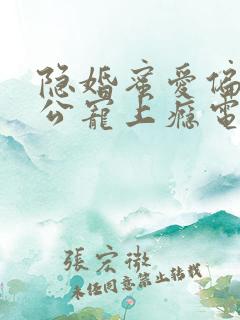 隐婚蜜爱偏
公宠上瘾电
張宏微
未经同意禁止转载